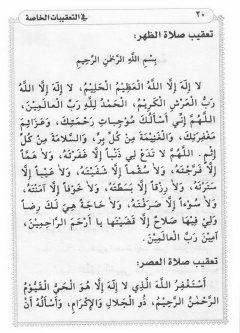 ٢٠
في التعقيبات الخاصة
تعقيب صلاة الظهر:
بِسْمِ اللَّهِ الرَّحْمٰنِ الرَّحِيْمِ
لا إِلٰهَ إِلَّا اللَّهُ الْعَظِيمُ الْحَلِيمُ، لا إِلٰهَ إِلَّا اللَّهُ
رَبُّ الْعَرْشِ الْكَرِيمُ، الْحَمْدُ لِلَّهِ رَبِّ الْعَالَمِينَ،
اللَّهُمَّ إِنِّي أَسْأَلُكَ مُوجِبَاتِ رَحْمَتِكَ، وَعَزَائِمَ
مَغْفِرَتِكَ، وَالْغَنِيمَةَ مِنْ كُلِّ بِرٍّ، وَالسَّلامَةَ مِنْ كُلِّ
إِثْمٍ. اللَّهُمَّ لا تَدَعْ لِي ذَنْباً إِلَّا غَفَرْتَهُ، وَلاَ هَمّاً
إِلَّا فَرَّجْتَهُ، وَلاَ سُقْماً إِلَّا شَفَيْتَهُ، وَلاَ عَيْباً إِلَّا
سَتَرْتَهُ، وَلاَ رِزْقاً إِلَّا بَسَطْتَهُ، وَلاَ خَوْفاً إِلَّا آمَنْتَهُ،
وَلاَ سُوْءاً إِلَّا صَرَفْتَهُ، وَلاَ حَاجَةً هِيَ لَكَ رِضاً
وَلِيَ فِيْهَا صَلاحٌ إِلَّا قَضَيْتَهَا يَا أَرْحَمَ الرَّاحِمِينَ،
آمِينَ رَبَّ الْعَالَمِينَ.
تعقيب صلاة العصر:
أَسْتَغْفِرُ اللَّهَ الَّذِي لا إِلٰهَ إِلَّا هُوَ الْحَيُّ الْقَيُّومُ
الرَّحْمٰنُ الرَّحِيمُ، ذُو الْجَلالِ وَالإِكْرَامِ، وَأَسْأَلُهُ أَنْ